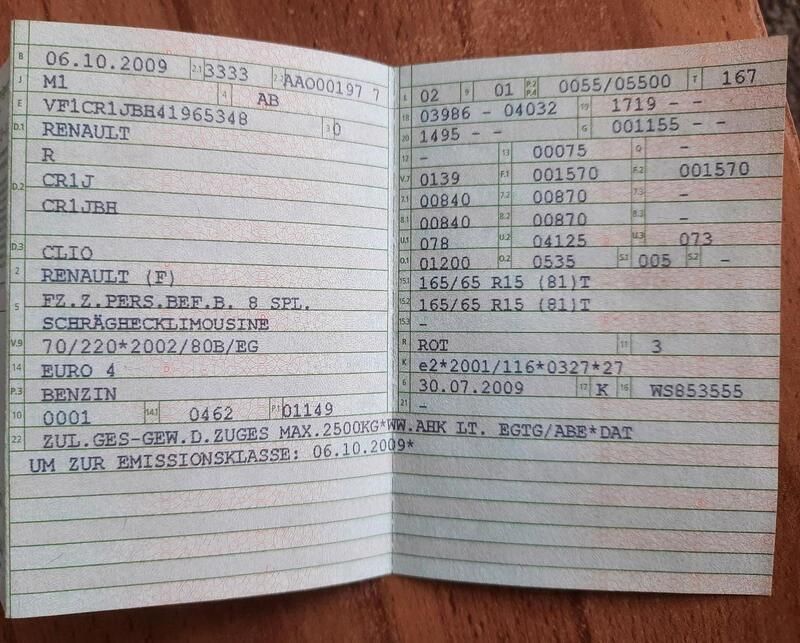 B 06.10.2009 2.1 3333 2.2 AAO00197 7
J M1 4 AB
E VF1CR1JBH41965348 3 0
D.1 RENAULT
R
D.2 CR1J
CR1JBH
D.3 CLIO
2 RENAULT (F)
5 FZ.Z.PERS.BEF.B. 8 SPL.
SCHRÄGHECKLIMOUSINE
V.9 70/220*2002/80B/EG
14 EURO 4
P.3 BENZIN
10 0001 14.1 0462 P.1 01149
L 02 9 01 P.2 P.4 0055/05500 T 167
18 03986 - 04032 19 1719 - -
20 1495 - - G 001155 - -
12 - 13 00075 Q -
V.7 0139 F.1 001570 F.2 001570
7.1 00840 7.2 00870 7.3 -
8.1 00840 8.2 00870 8.3 -
U.1 078 U.2 04125 U.3 073
O.1 01200 O.2 0535 S.1 005 S.2 -
15.1 165/65 R15 (81)T
15.2 165/65 R15 (81)T
15.3 -
R ROT 11 3
K e2*2001/116*0327*27
6 30.07.2009 17 K 16 WS853555
21 -
22 ZUL.GES-GEW.D.ZUGES MAX.2500KG*WW.AHK LT. EGTG/ABE*DAT
UM ZUR EMISSIONSKLASSE: 06.10.2009*